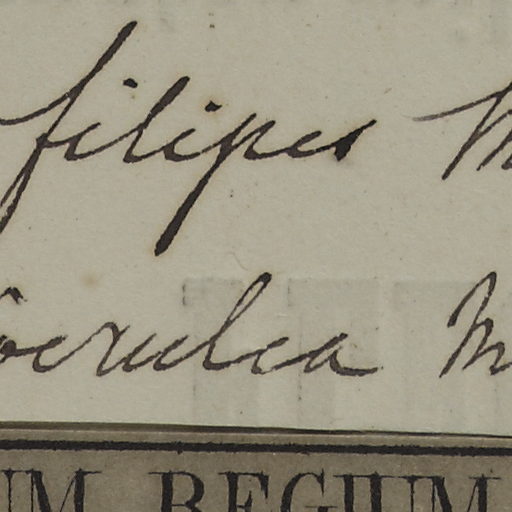 filipes M
oerulea M
UM REGIUM